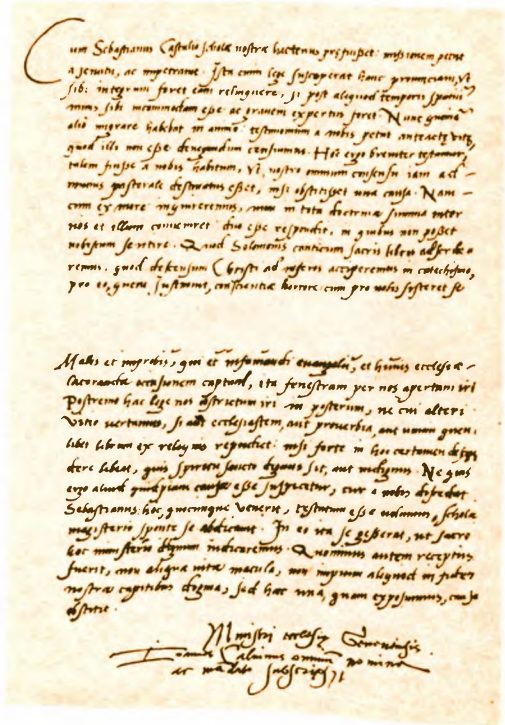 Cum Sebastianus Castalio scholæ nostræ hactenus præfuisset: missionem petiit
a senatu, ac impetravit. Ista enim lege susceperat hanc provinciam, ut
sibi integrum foret eam relinquere, si post aliquod temporis spatium
nimis sibi incommodam esse ac gravem expertus foret. Nunc quoniam
alio migrare habebat in animo: testimonium a nobis petiit anteactæ vitæ,
quod illi non esse denegandum censuimus. Hoc ergo breviter testamur,
talem fuisse a nobis habitum, ut nostro omnium consensu iam ad
munus pastorale destinatus esset, nisi obstitisset una causa. Nam
cum ex more inquireremus, num in tota doctrinæ summa inter
nos et illum conveniret: duo esse respondit, in quibus non posset
nobiscum sentire. Quod Solomonis canticum sacris libris adscribe-
remus, quod descensum Christi ad inferos acciperemus in catechismo,
pro eo, quem sustinuit, conscientiæ horrore cum pro nobis sisteret se
Malis et improbis, qui et infamandi evangelii, et huius ecclesiæ
lacerandæ occasionem captant, ita fenestram per nos apertam iri
Postremo hac lege nos obstrictum iri in posterum, ne cui alteri
vitio vertamus, si aut ecclesiastem, aut proverbia, aut unum quem-
libet librum ex reliquo repudiet: nisi forte in hoc certamen
dere libeat, quis spiritu sancto dignus sit, aut indignus. Ne quis
ergo aliud quidpiam causæ esse suspicetur, cur a nobis discedat
Sebastianus: hoc, quocunque venerit, testatum esse volumus, scholæ
magisterio sponte se abdicavit. In eo ita se gesserat, ut sacro
hoc ministerio dignum iudicaremus. Quominus autem receptus
fuerit, non aliqua vitæ macula, non impium aliquod in fidei
nostræ capitibus dogma, sed hac una, quam exposuimus, causa
obstitit.
Ministri ecclesiæ Genevensis.
Ioannes Calvinus omnium nomine
ac mandato subscripsi